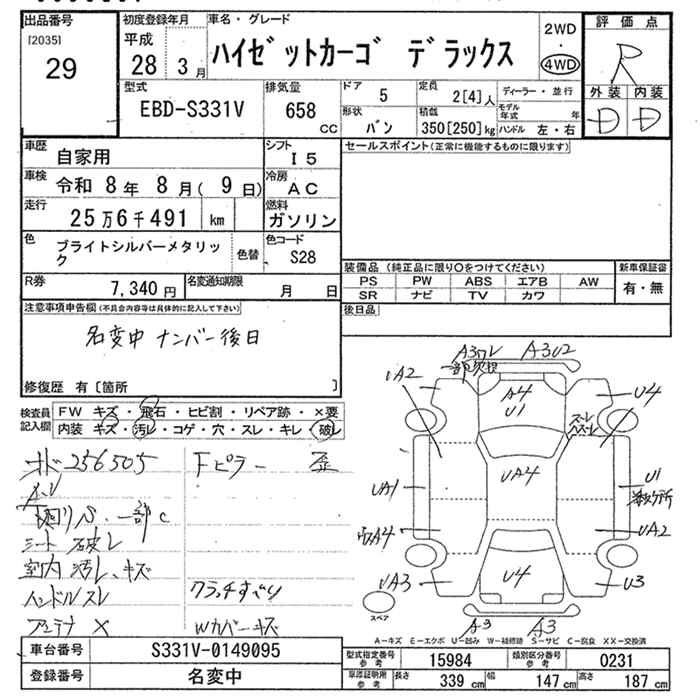 出品番号
[2035]
29
初度登録年月
平成
28 3月
車名・グレード
ハイゼットカーゴ デラックス
2WD
・
4WD
評価点
R
外装 内装
D D
型式
EBD-S331V
排気量
658 cc
ドア 5
形状 バン
定員 2[4]人
積載 350[250]kg
ディーラー・並行
モデル年式 年
ハンドル 左・右
車歴 自家用
シフト I5
車検 令和 8年 8月( 9日)
冷房 AC
走行 25万6千491 km
燃料 ガソリン
色 ブライトシルバーメタリック
色替
色コード S28
R券 7,340円
名変通知期限 月 日
セールスポイント(正常に機能するものに限ります)
装備品(純正品に限り○をつけてください)
新車保証書
PS PW ABS エアB AW
SR ナビ TV カワ
有・無
後日品
注意事項申告欄(不具合内容等は具体的に記入して下さい)
名変中 ナンバー後日
修復歴 有〔箇所 〕
検査員記入欄
FW キズ・飛石・ヒビ割・リペア跡・×要
内装 キズ・汚レ・コゲ・穴・スレ・キレ・破レ
オド256505
Fピラー 歪
廻りS、一部C
シート 破レ
室内 汚レ、キズ
クラッチすべり
ハンドルスレ
アンテナ ×
Wカバーキズ
A3
A3U2
UA2
A4
U1
U4
UA4
UA1
U1
UA4
UA2
UA3
U4
U3
A3
A3
スペア
A−キズ E−エクボ U−凹み W−補修跡 S−サビ C−腐食 XX−交換済
車台番号 S331V-0149095
登録番号 名変中
型式指定番号 参考 15984
類別区分番号 参考 0231
車庫証明用 参考
長さ 339 cm
幅 147 cm
高さ 187 cm